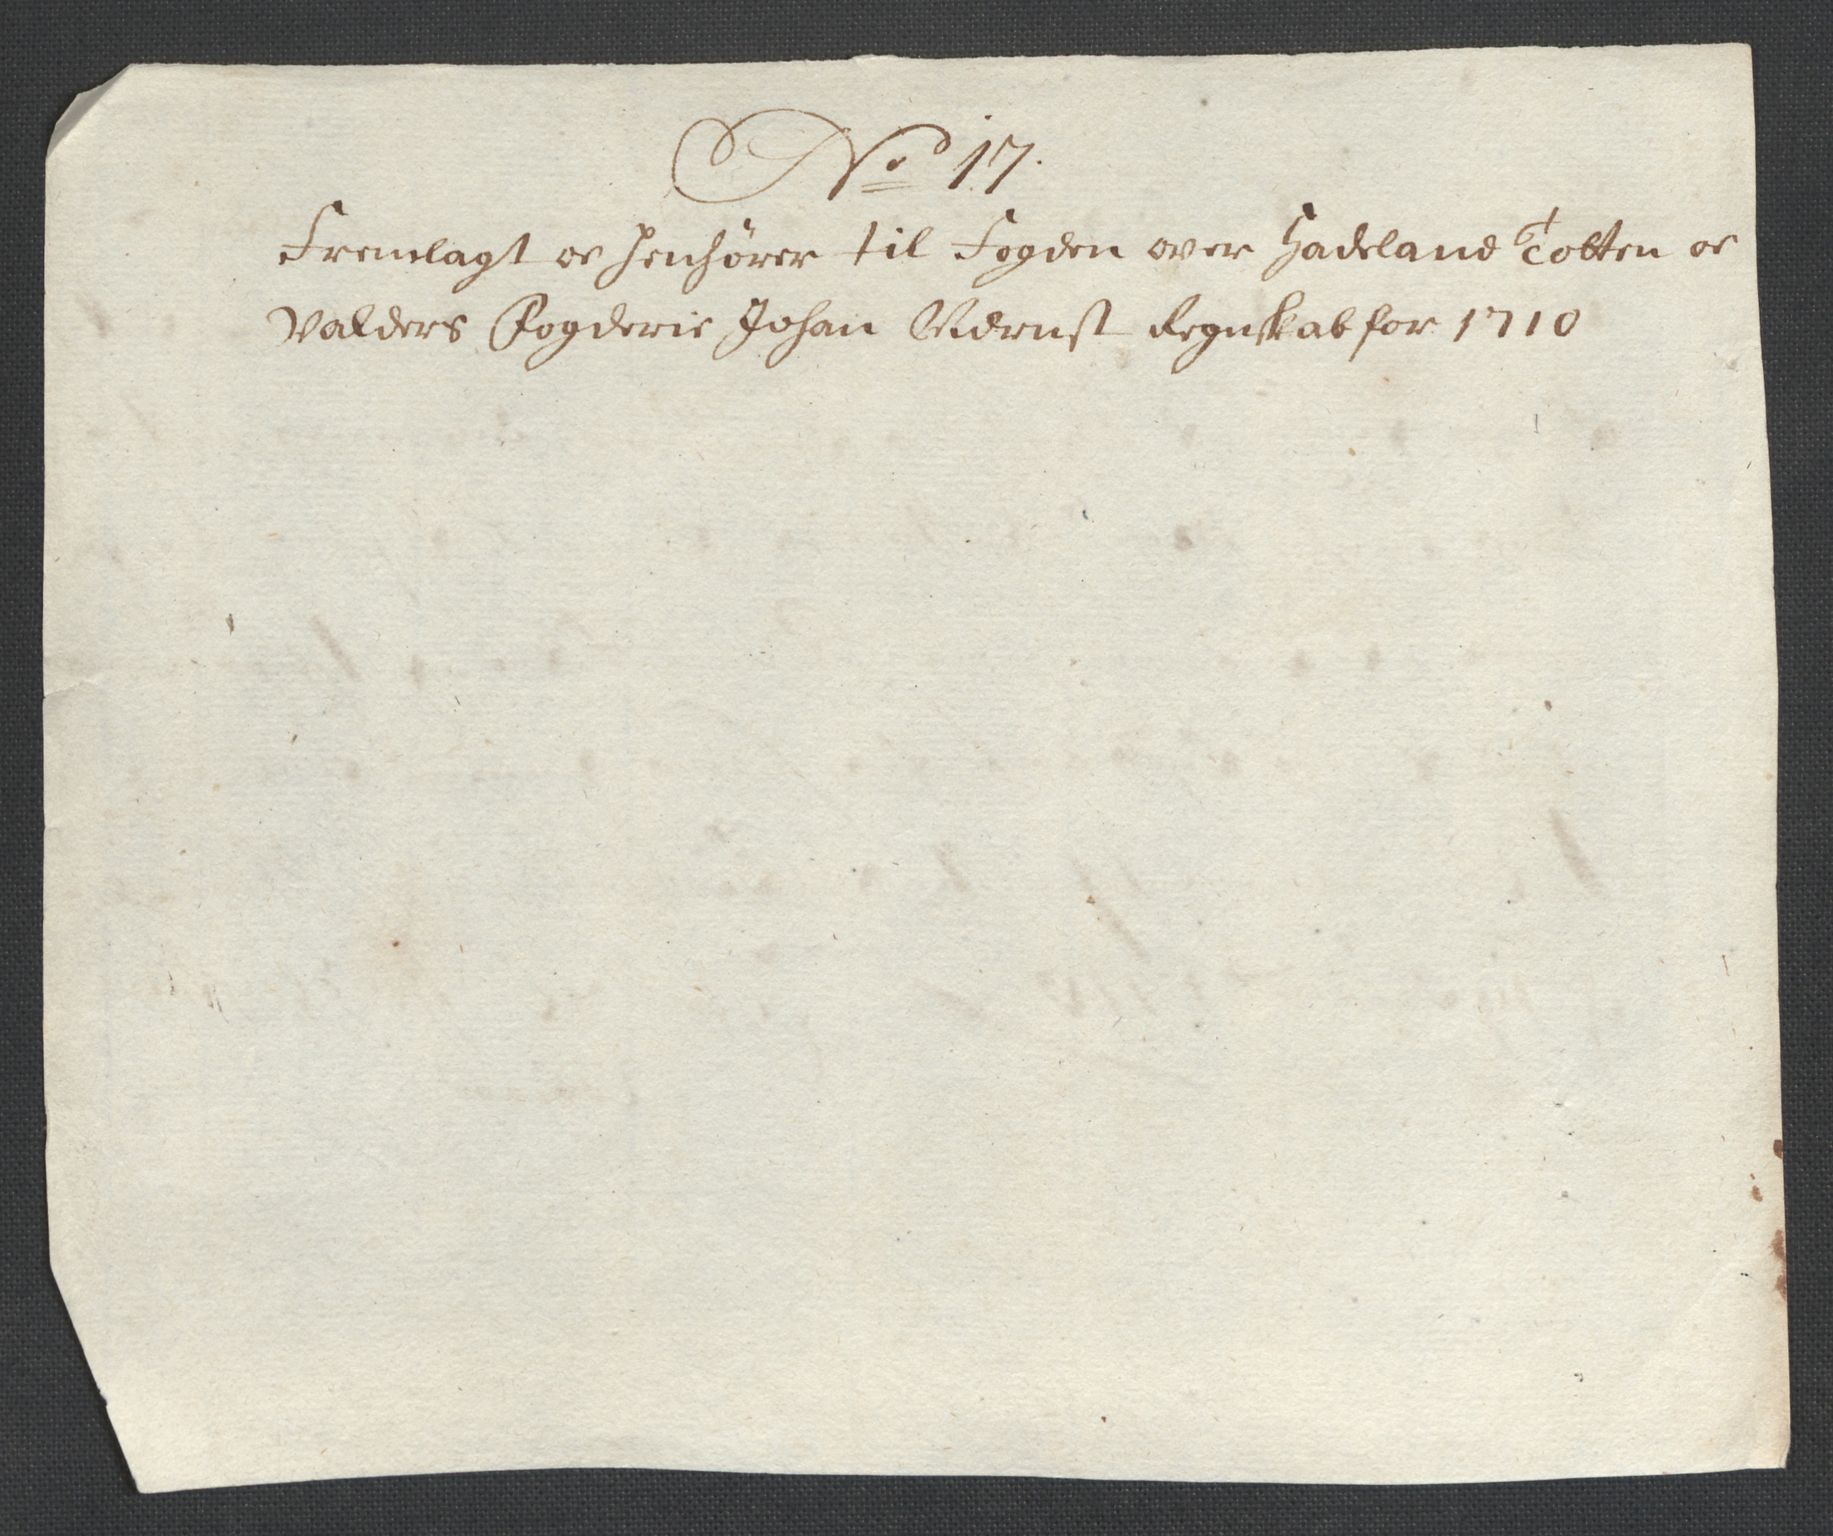 No 17.
Fremlagt oc henhører til Fogden over Hadeland Totten oc
Valders Fogderie Johan Wernst Regnskab for 1710